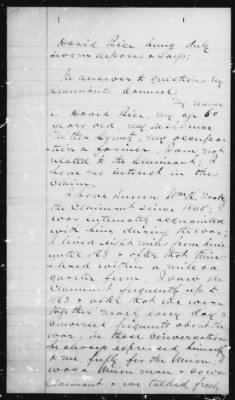 David Rice being duly
sworn deposes & says;
In answer to questions by
claimants counsel;
My name
is David Rice, my age 60
years old, my residence
in this County, my occupa-
tion a farmer. I am not
related to the claimant; I
have no interest in this
claim.
I have known Wm H.
the Claimant since
was intimately acquainted
with him during the war;
I lived eight miles from him
until 1863 & after that time
lived within a mile & a
quarter from. I saw the
Claimant frequently up to
1863 & after that we were
together nearly every day &
conversed frequently about the
war, in those conversations
he always expressed himself
to me fully for the Union. I
was a Union man & so was
Claimant & we talked freely